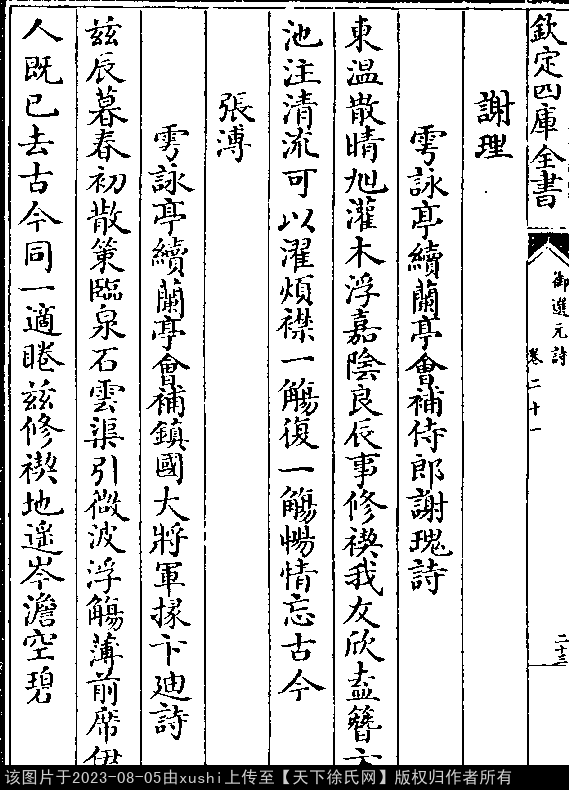 欽定四庫全書
御選元詩
卷二十一
二十三
謝理
雩詠亭續蘭亭會補侍郎謝瑰詩
東温散晴旭灌木浮嘉陰良辰事修禊我友欣盍簪方
池注清流可以濯煩襟一觴復一觴暢情忘古今
張溥
雩詠亭續蘭亭會補鎮國大將軍掾卞廸詩
兹辰暮春初散策臨泉石雲渠引微波浮觴薄前席伊
人既已去古今同一適睠兹修禊地遥岑澹空碧
该图片于2023-08-05由xushi上传至【天下徐氏网】版权归作者所有